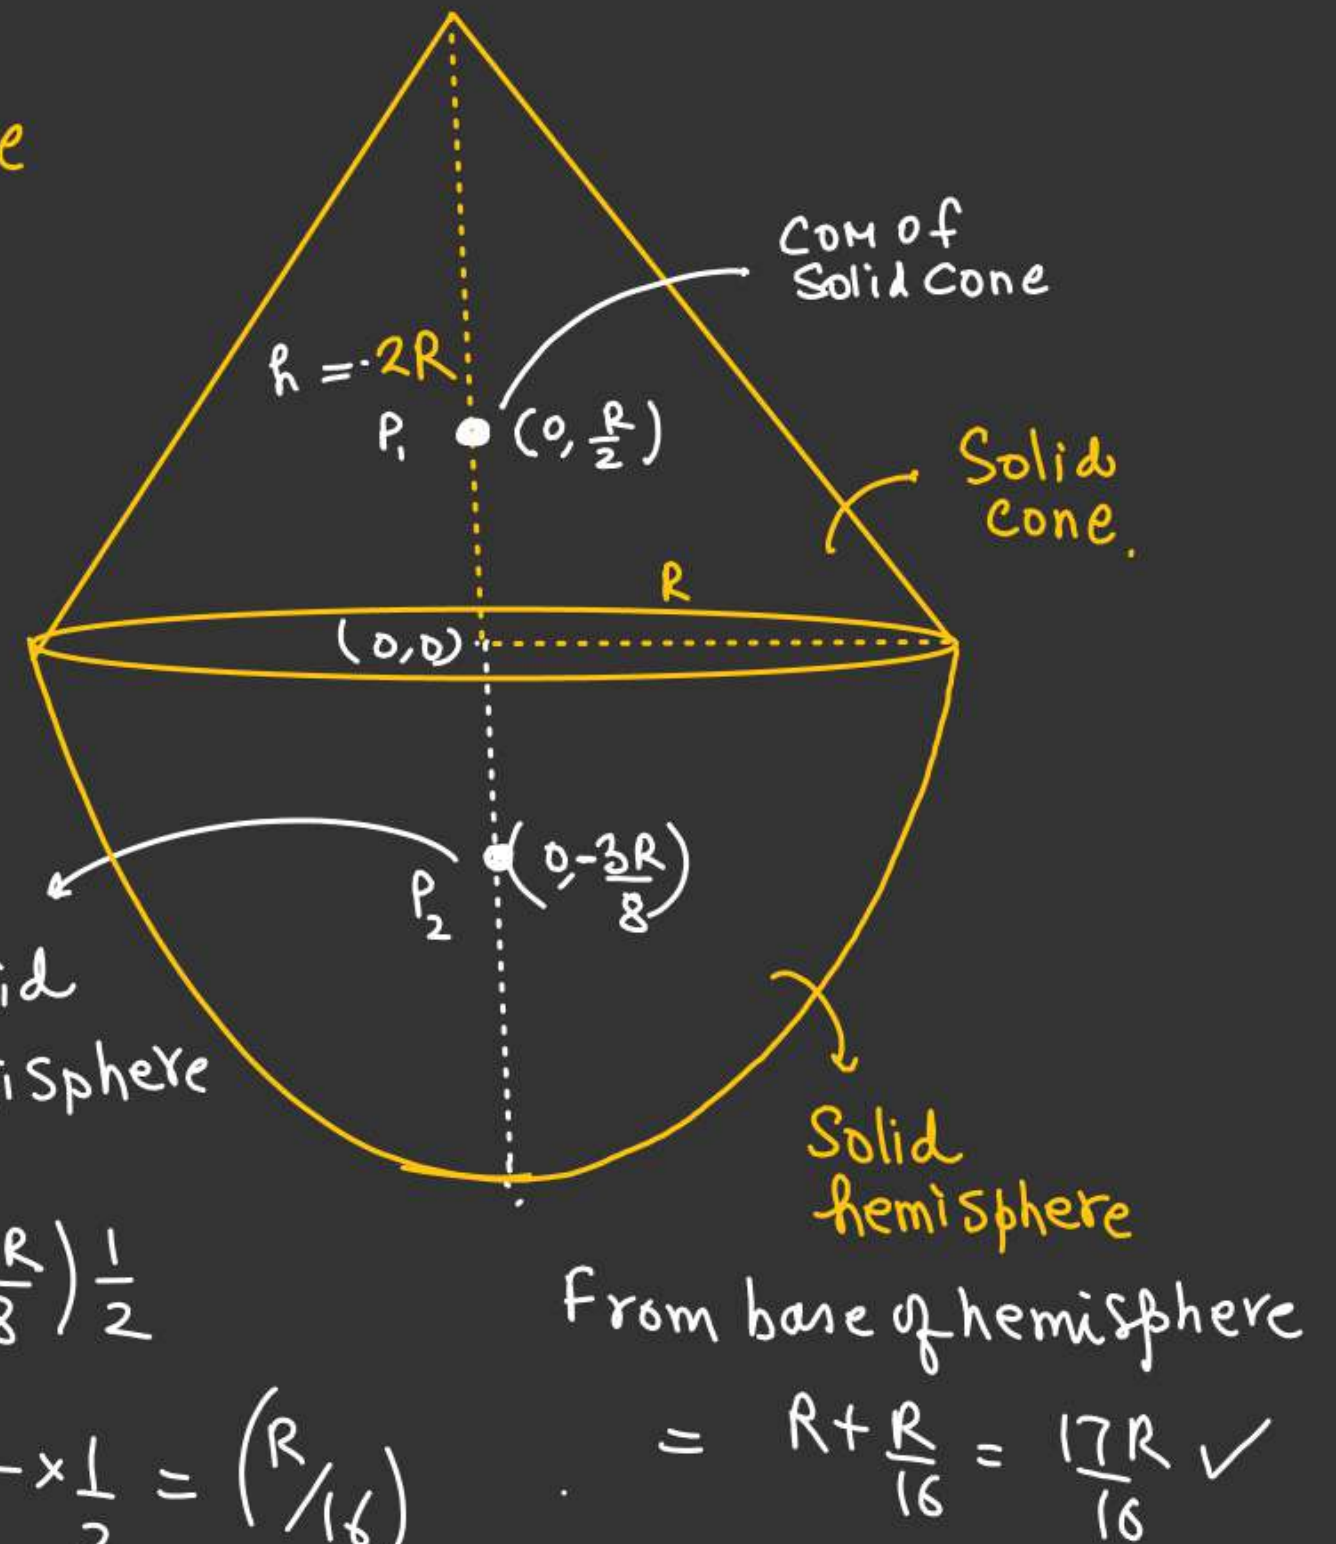 e
COM of
Solid Cone
h = 2R
P₁ (0, R/2)
Solid
cone.
R
(0,0)
P₂ (0, -3R/8)
id
isphere
Solid
hemisphere
R/8) 1/2
From base of hemisphere
- x 1/2 = (R/16)
= R + R/16 = 17R/16 ✓